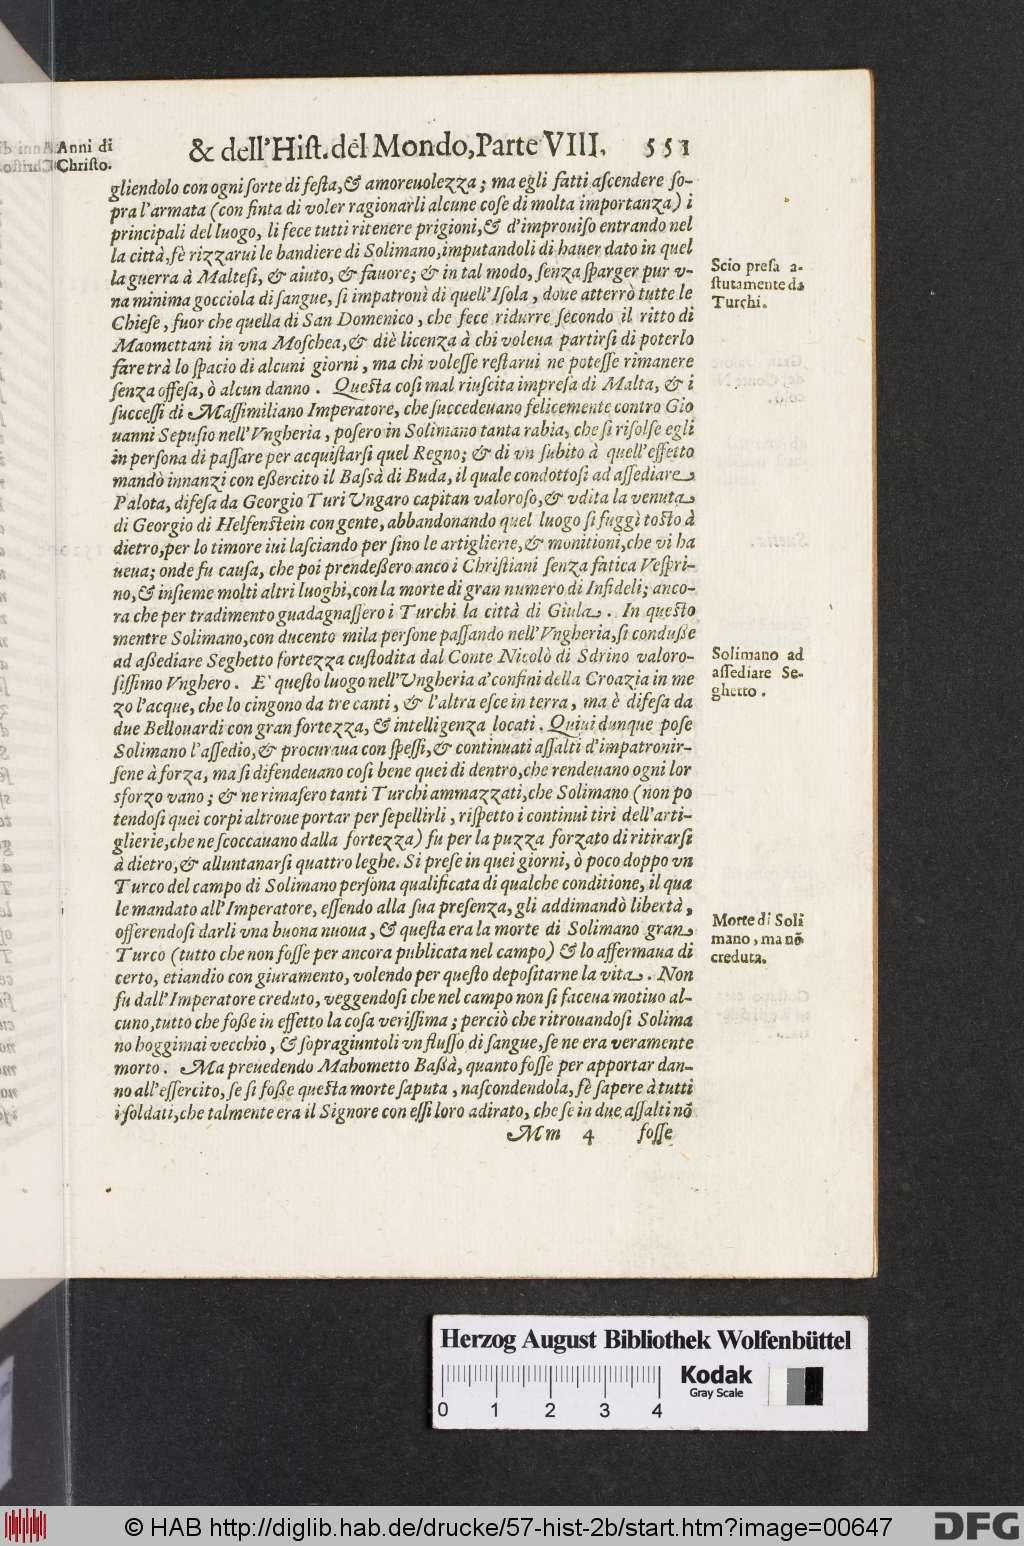 Anni di
Christo.
& dell'Hist. del Mondo, Parte VIII. 551
gliendolo con ogni sorte di festa, & amoreuolezza; ma egli fatti ascendere so-
pra l'armata (con finta di voler ragionarli alcune cose di molta importanza) i
principali del luogo, li fece tutti ritenere prigioni, & d'improuiso entrando nel
la città, fè rizzarui le bandiere di Solimano, imputandoli di hauer dato in quel
la guerra à Maltesi, & aiuto, & fauore; & in tal modo, senza sparger pur v-
na minima gocciola di sangue, si impatronì di quell'Isola, doue atterrò tutte le
Chiese, fuor che quella di San Domenico, che fece ridurre secondo il ritto di
Maomettani in vna Moschea, & diè licenza à chi voleua partirsi di poterlo
fare trà lo spacio di alcuni giorni, ma chi volesse restarui ne potesse rimanere
senza offesa, ò alcun danno. Questa cosi mal riuscita impresa di Malta, & i
successi di Massimiliano Imperatore, che succedeuano felicemente contro Gio
uanni Sepusio nell'Vngheria, posero in Solimano tanta rabia, che si risolse egli
in persona di passare per acquistarsi quel Regno; & di vn subito à quell'effetto
mandò innanzi con eßercito il Bassà di Buda, il quale condottosi ad assediare
Palota, difesa da Georgio Turi Vngaro capitan valoroso, & vdita la venuta
di Georgio di Helfenstein con gente, abbandonando quel luogo si fuggì tosto à
dietro, per lo timore iui lasciando per sino le artiglierie, & monitioni, che vi ha
ueua; onde fu causa, che poi prendeßero anco i Christiani senza fatica Vespri-
no, & insieme molti altri luoghi, con la morte di gran numero di Infideli; anco-
ra che per tradimento guadagnassero i Turchi la città di Giula. In questo
mentre Solimano, con ducento mila persone passando nell'Vngheria, si conduße
ad aßediare Seghetto fortezza custodita dal Conte Nicolò di Sdrino valoro-
sissimo Vnghero. E' questo luogo nell'Vngheria a' confini della Croazia in me
zo l'acque, che lo cingono da tre canti, & l'altra esce in terra, ma è difesa da
due Bellouardi con gran fortezza, & intelligenza locati. Quiui dunque pose
Solimano l'assedio, & procuraua con spessi, & continuati assalti d'impatronir-
sene à forza, ma si difendeuano cosi bene quei di dentro, che rendeuano ogni lor
sforzo vano; & ne rimasero tanti Turchi ammazzati, che Solimano (non po
tendosi quei corpi altroue portar per sepellirli, rispetto i continui tiri dell'arti-
glierie, che ne scoccauano dalla fortezza) fu per la puzza forzato di ritirarsi
à dietro, & alluntanarsi quattro leghe. Si prese in quei giorni, ò poco doppo vn
Turco del campo di Solimano persona qualificata di qualche conditione, il qua
le mandato all'Imperatore, essendo alla sua presenza, gli addimandò libertà,
offerendosi darli vna buona nuoua, & questa era la morte di Solimano gran
Turco (tutto che non fosse per ancora publicata nel campo) & lo affermaua di
certo, etiandio con giuramento, volendo per questo depositarne la vita. Non
fu dall'Imperatore creduto, veggendosi che nel campo non si faceua motiuo al-
cuno, tutto che foße in effetto la cosa verissima; perciò che ritrouandosi Solima
no hoggimai vecchio, & sopragiuntoli vn flusso di sangue, se ne era veramente
morto. Ma preuedendo Mahometto Baßà, quanto fosse per apportar dan-
no all'essercito, se si foße questa morte saputa, nascondendola, fè sapere à tutti
i soldati, che talmente era il Signore con essi loro adirato, che se in due assalti nõ
Mm 4 fosse
Scio presa a-
stutamente da
Turchi.
Solimano ad
assediare Se-
ghetto.
Morte di Soli
mano, ma nõ
creduta.
Herzog August Bibliothek Wolfenbüttel
Kodak
Gray Scale
0 1 2 3 4
© HAB http://diglib.hab.de/drucke/57-hist-2b/start.htm?image=00647
DFG